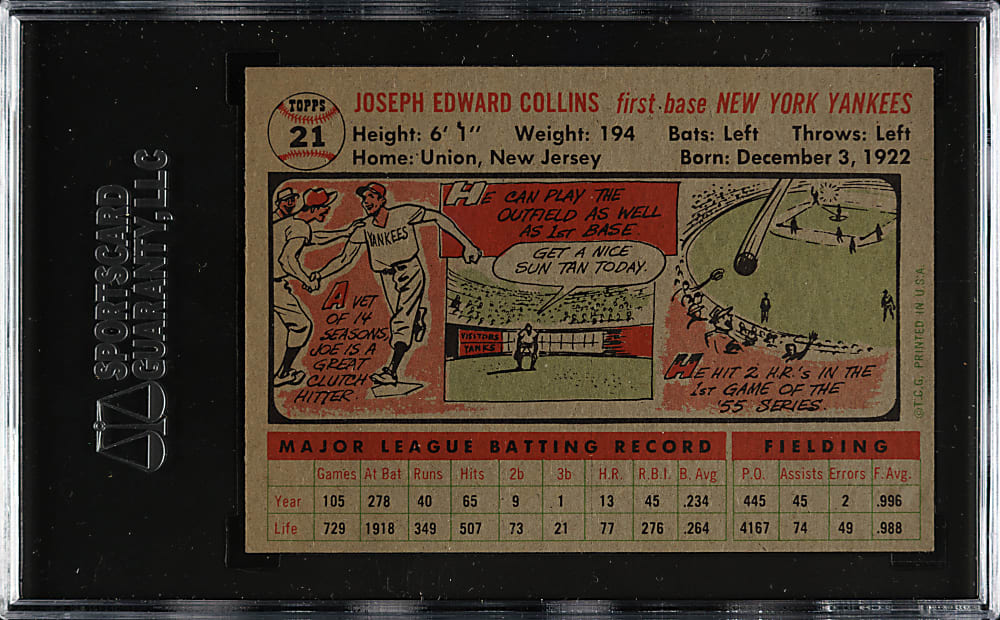 SPORTSCARD
GUARANTY, LLC
TOPPS
21
JOSEPH EDWARD COLLINS first base NEW YORK YANKEES
Height: 6' 1" Weight: 194 Bats: Left Throws: Left
Home: Union, New Jersey Born: December 3, 1922
YANKEES
A VET
OF 14
SEASONS,
JOE IS A
GREAT
CLUTCH
HITTER.
HE CAN PLAY THE
OUTFIELD AS WELL
AS 1ST BASE.
GET A NICE
SUN TAN TODAY.
VISITORS
YANKS
HE HIT 2 H.R.'S IN THE
1ST GAME OF THE
'55 SERIES.
©T.C.G. PRINTED IN U.S.A.
MAJOR LEAGUE BATTING RECORD FIELDING
Games At Bat Runs Hits 2b 3b H.R. R.B.I. B. Avg P.O. Assists Errors F. Avg.
Year 105 278 40 65 9 1 13 45 .234 445 45 2 .996
Life 729 1918 349 507 73 21 77 276 .264 4167 74 49 .988